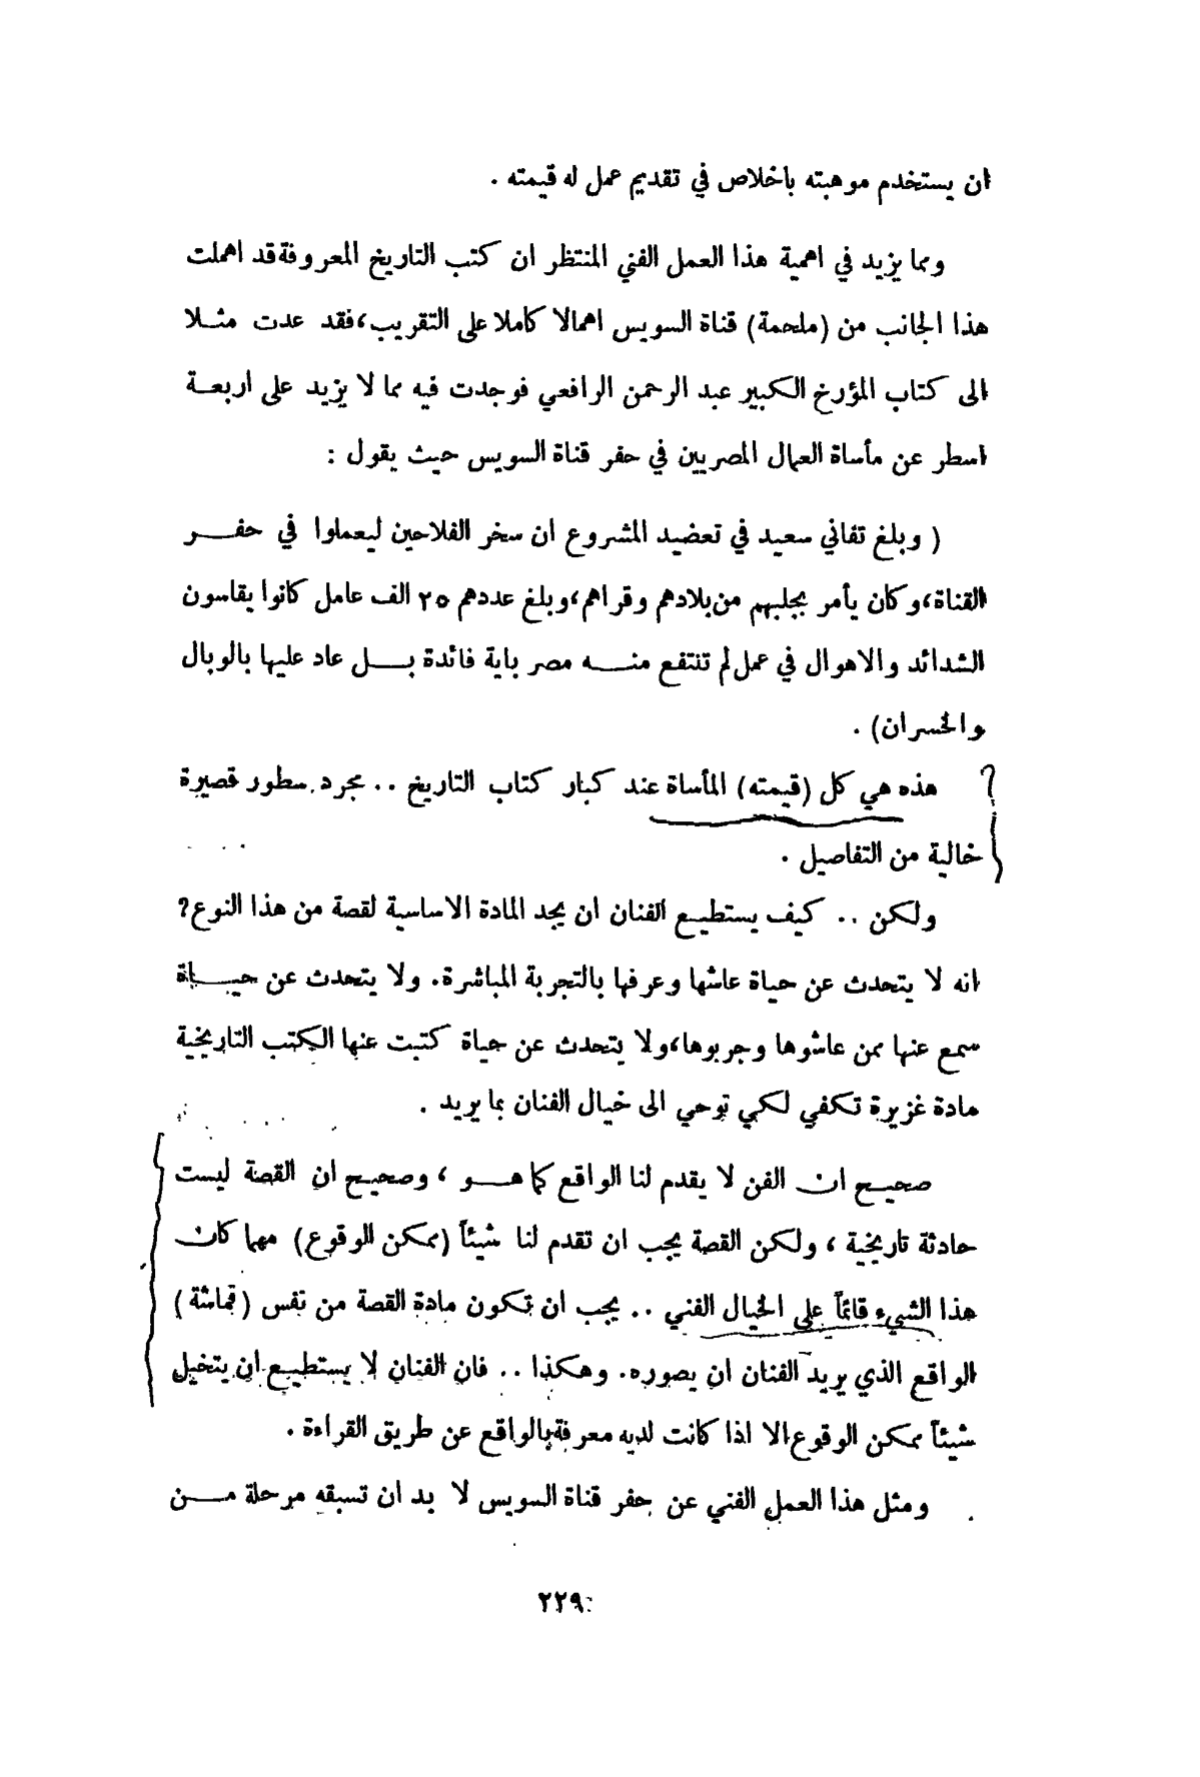 ان يستخدم موهبته باخلاص في تقديم عمل له قيمته .
ومما يزيد في اهمية هذا العمل الفني المنتظر ان كتب التاريخ المعروفة قد اهملت
هذا الجانب من (ملحمة) قناة السويس اهمالا كاملا على التقريب، فقد عدت مثلا
الى كتاب المؤرخ الكبير عبد الرحمن الرافعي فوجدت فيه مما لا يزيد على اربعة
اسطر عن مأساة العمال المصريين في حفر قناة السويس حيث يقول :
( وبلغ تفاني سعيد في تعضيد المشروع ان سخر الفلاحين ليعملوا في حفر
القناة، وكان يأمر بجلبهم من بلادهم وقراهم، وبلغ عددهم ٢٥ الف عامل كانوا يقاسون
الشدائد والاهوال في عمل لم تنتفع منه مصر باية فائدة بل عاد عليها بالوبال
والخسران) .
هذه هي كل (قيمته) المأساة عند كبار كتاب التاريخ .. مجرد سطور قصيرة
خالية من التفاصيل .
ولكن .. كيف يستطيع الفنان ان يجد المادة الاساسية لقصة من هذا النوع؟
انه لا يتحدث عن حياة عاشها وعرفها بالتجربة المباشرة. ولا يتحدث عن حياة
سمع عنها ممن عاشوها وجربوها، ولا يتحدث عن حياة كتبت عنها الكتب التاريخية
مادة غزيرة تكفي لكي توحي الى خيال الفنان بما يريد .
صحيح ان الفن لا يقدم لنا الواقع كما هو ، وصحيح ان القصة ليست
حادثة تاريخية ، ولكن القصة يجب ان تقدم لنا شيئاً (ممكن الوقوع) مهما كان
هذا الشيء قائماً على الخيال الفني .. يجب ان تكون مادة القصة من نفس (قماشة)
الواقع الذي يريد الفنان ان يصوره. وهكذا .. فان الفنان لا يستطيع ان يتخيل
شيئاً ممكن الوقوع الا اذا كانت لديه معرفة بالواقع عن طريق القراءة .
ومثل هذا العمل الفني عن حفر قناة السويس لا بد ان تسبقه مرحلة من
٢٢٩